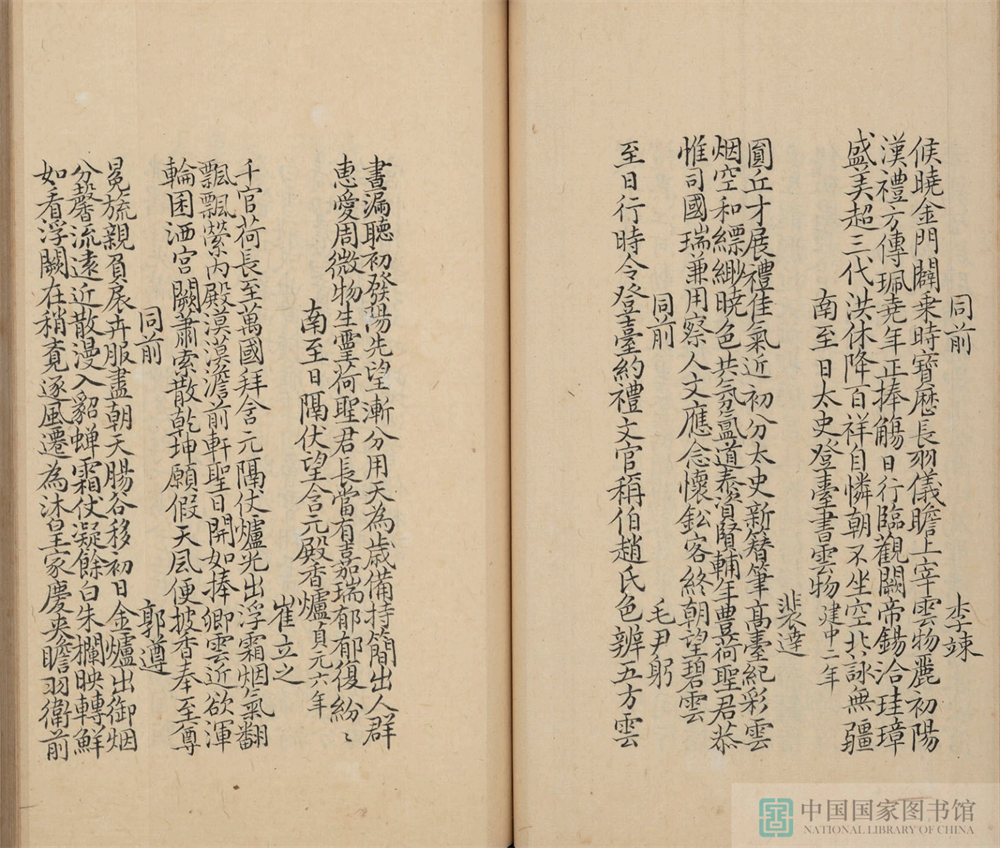 同前　李竦
候曉金門闢乘時寶歷長羽儀瞻上宰雲物麗初陽
漢禮方傳珮堯年正捧觴日行臨觀闕帝錫洽珪璋
盛美超三代洪休降百祥自憐朝不坐空此詠無疆
南至日太史登臺書雲物 建中二年
裴達
圓丘才展禮佳氣近初分太史新簪筆髙臺紀彩雲
烟空和縹緲曉色共氛氳道泰資賢輔年豊荷聖君恭
惟司國瑞兼用察人文應念懷鈆客終朝望碧雲
同前　毛尹躬
至日行時令登臺約禮文官稱伯趙氏色辨五方雲
晝漏聽初發陽先望漸分用天為歲備持簡出人群
惠愛周微物生靈荷聖君長當有嘉瑞郁郁復紛〻
南至日隔伏望含元殿香爐 貞元六年
崔立之
千官荷長至萬國拜含元隔伏爐光出浮霜烟氣翻
飄飄縈內殿漠漠澹前軒聖日開如捧卿雲近欲渾
輪囷洒宮闕肅索散乾坤願假天風便披香奉至尊
同前　郭遵
冕旒親負扆卉服盡朝天腸谷移初日金爐出御烟
芬馨流遠近散漫入貂蟬霜仗凝餘白朱欄映轉鮮
如看浮闕在稍覔逐風遷為沐皇家慶來瞻羽衛前
中国国家图书馆
NATIONAL LIBRARY OF CHINA